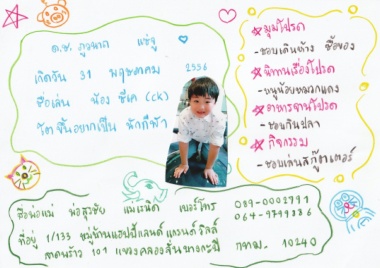 ด.ช. ภูวนาท แซ่จู
เกิดวัน 31 พฤษภาคม 2556
ชื่อเล่น น้อง ซีเค (CK)
โตขึ้นอยากเป็น นักกีฬา
มุมโปรด
- ชอบเดินห้าง ซื้อของ
นิทานเรื่องโปรด
- หนูน้อยหมวกแดง
อาหารจานโปรด
- ชอบกินปลา
กิจกรรม
- ชอบเล่นสกู๊ตเตอร์
ชื่อพ่อแม่ พ่อสุรชัย แม่เรนิด เบอร์โทร 089-0002991
064-9799886
ที่อยู่ 1/133 หมู่บ้านแฮปปี้แลนด์ แกรนด์วิลล์
ลาดพร้าว 101 แขวงคลองจั่น บางกะปิ กทม. 10240